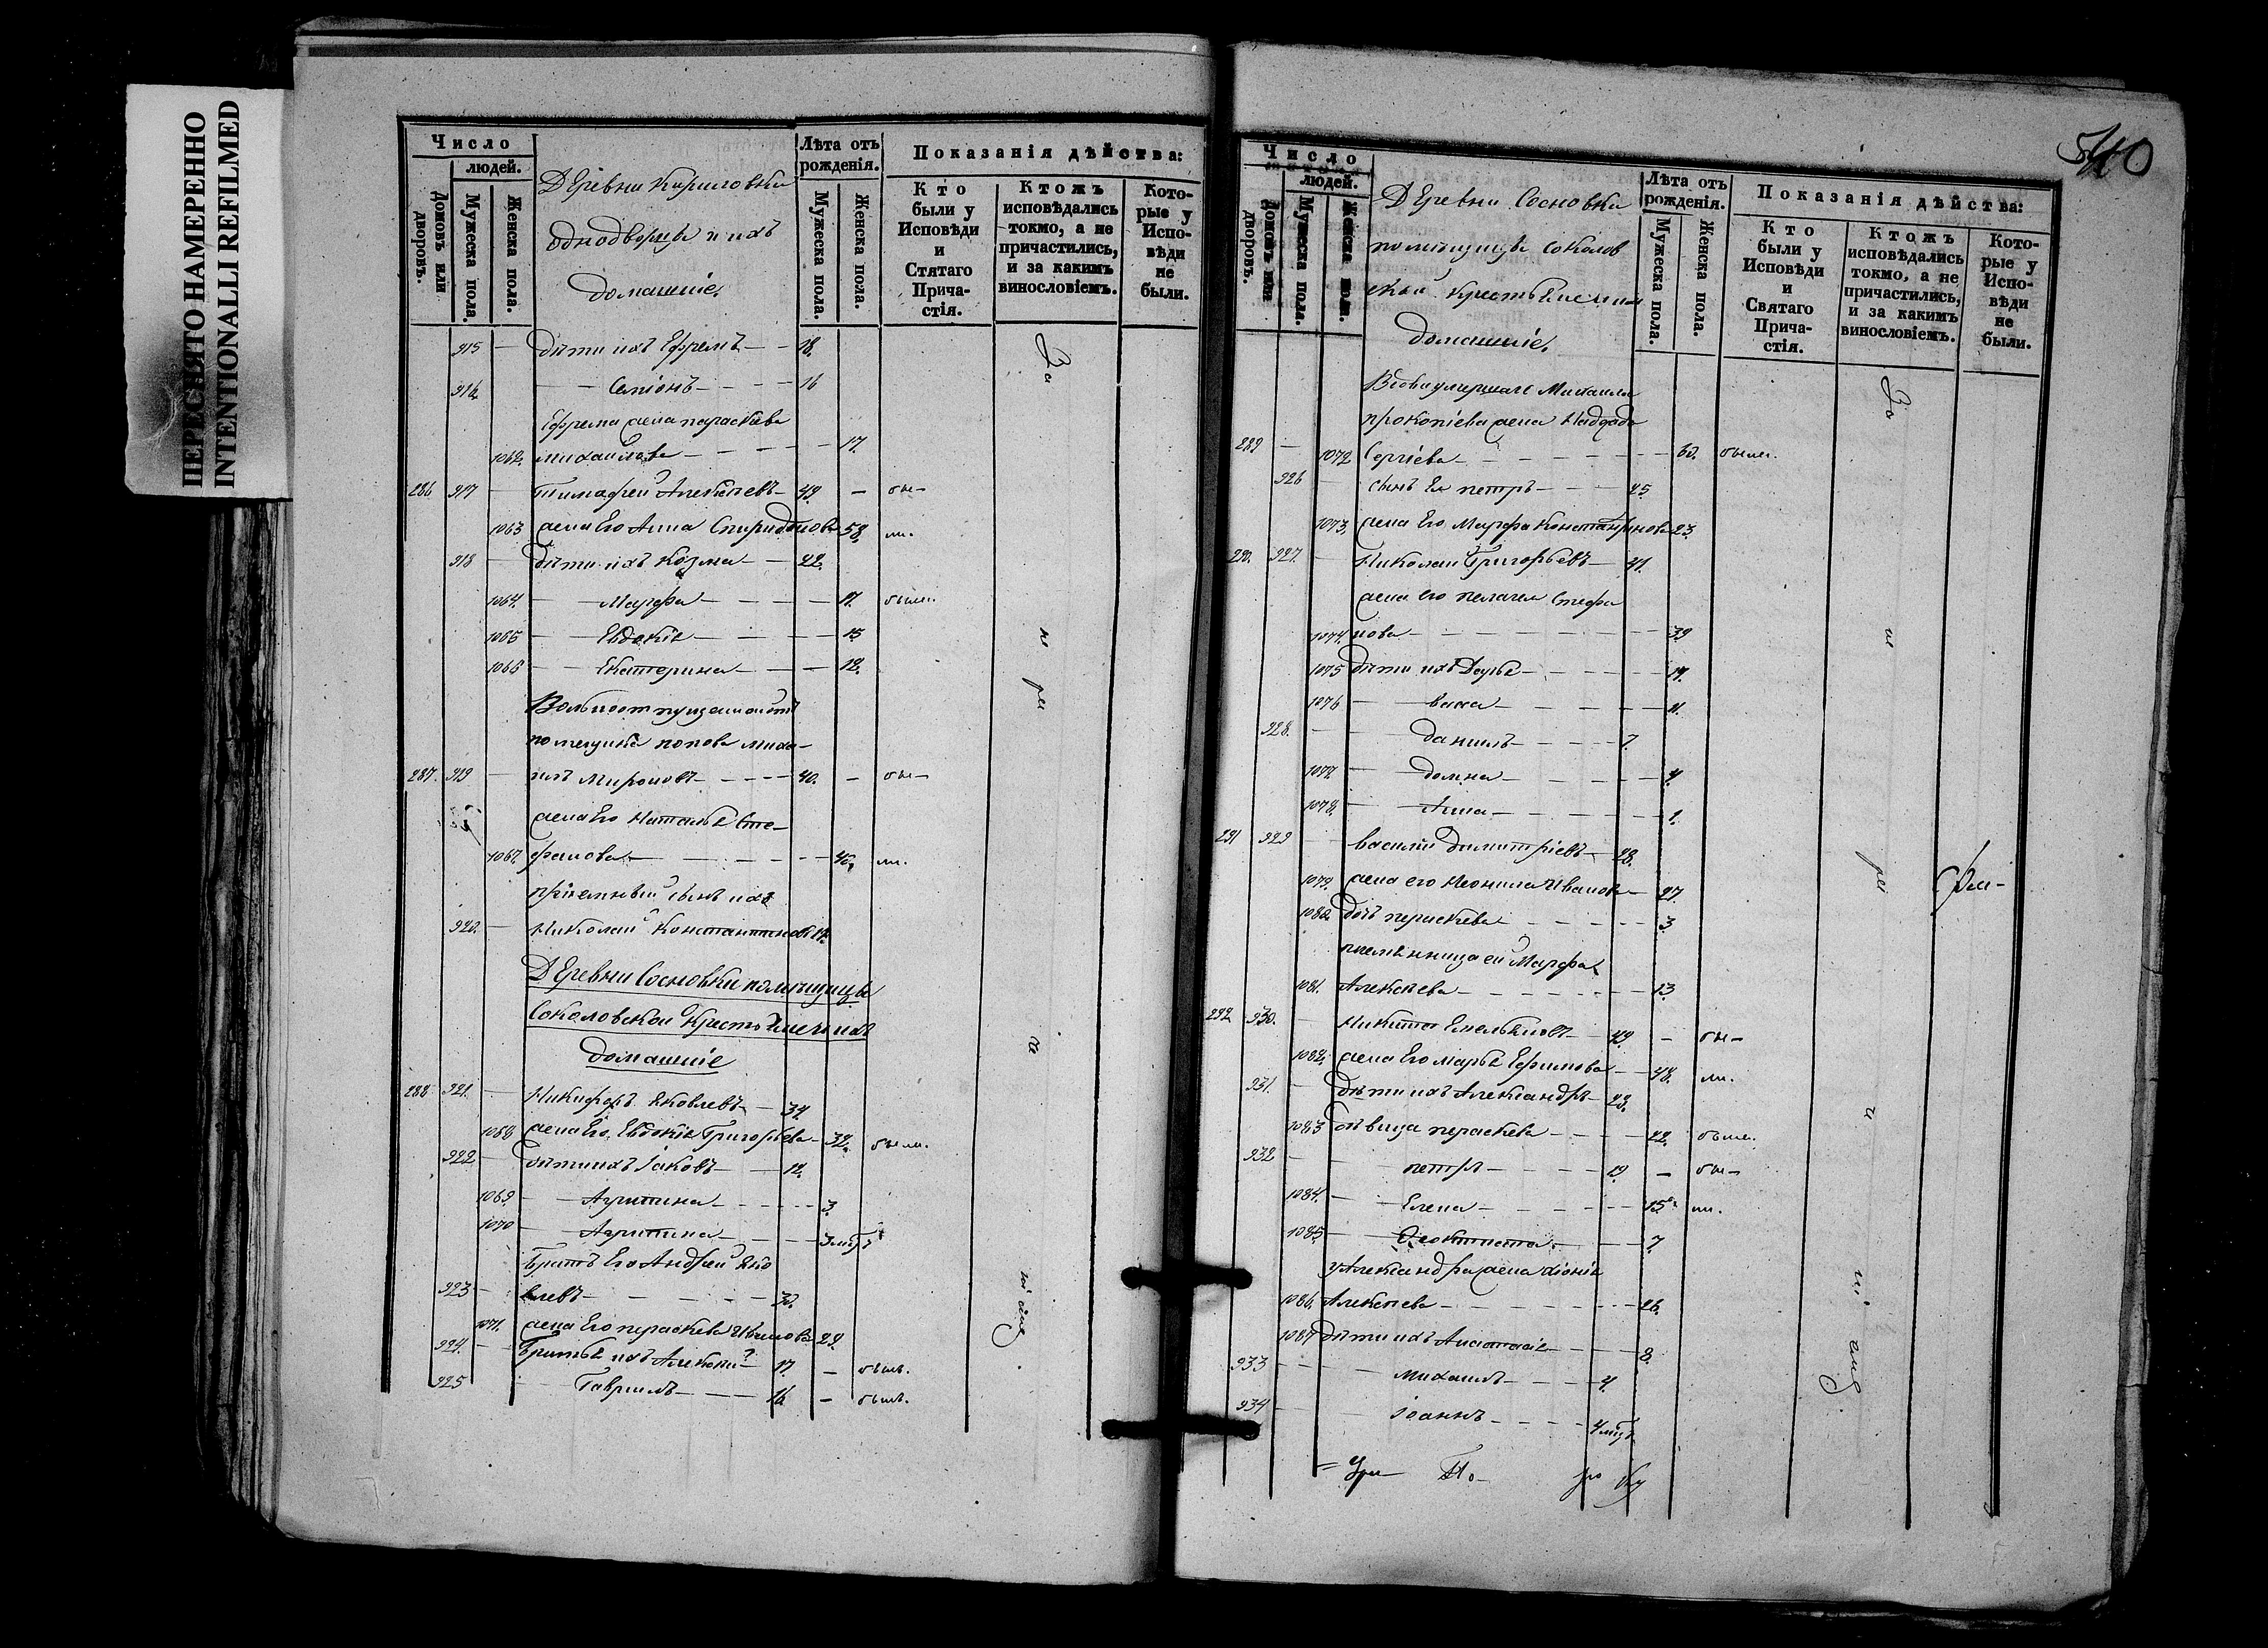 ПЕРЕСНЯТО НАМЕРЕННО
INTENTIONALLI REFILMED
Число
людей.
Домовъ или дворовъ.
Мужеска пола.
Женска пола.
Деревни Кириловки
однодворцы и ихъ
домашніе.
Лѣта отъ рожденія.
Мужеска пола.
Женска пола.
Показанія дѣйства:
Кто были у Исповѣди и Стятаго Прича-стія.
Ктожъ исповѣдались токмо, а не причастились, и за какимъ винословіемъ.
Кото-рые у Испо-вѣди не были.
915 — дѣти ихъ Ефремъ — — 18.
916 — — Семіонъ — — — 16
Ефрема жена параскева
1062. михаилова — — — — 17.
286 917 — Тимофей Алексѣевъ — 49. — бы-
1063 жена Его Анна Спиридонова 58. ли.
918 — дѣти ихъ Козма — — 22.
1064. — Марфа — — — — 17. была.
1065 — — Евдокія — — — — 15
1066 — — Екатерина — — — 12.
Вольноотпущенный отъ
помещика попова миха-
287. 919 — илъ Мироновъ — — — 40. — бы-
жена Его Наталья Сте-
1067. фанова — — — — — 40. ли.
пріемный сынъ ихъ
920. — Николай Константиновъ 12.
Деревни Сосновки помѣщицы
Соколовской крестьяне и ихъ
домашніе
288 921. — Никифоръ Яковлевъ — 34
1068 жена Его Евдокія Григорьева — 32. были.
922 — дѣти ихъ Іаковъ — — 12.
1069 — Агрипина — — — — 3.
1070 — Агрипина — — — 3 мѣс.
Братъ Его Андрей Яко
923 — влевъ — — — — — 30.
1071. жена Его параскева Иванова 29.
924. — Братья ихъ Алексѣй — 17. — былъ.
925 — Гавріилъ — — — 16. — былъ.
За
не
ре
че
ніемъ.
540
Число
людей.
Домовъ или дворовъ.
Мужеска пола.
Женска пола.
Деревни Сосновки
помѣщицы Соколов
ской крестьяне и ихъ
домашніе.
Лѣта отъ рожденія.
Мужеска пола.
Женска пола.
Показанія дѣйства:
Кто были у Исповѣди и Святаго Прича-стія.
Ктожъ исповѣдались токмо, а не причастились, и за какимъ винословіемъ.
Кото-рые у Испо-вѣди не были.
Вдова умершаго Михаила
прокопіева жена
289 — 1072 Сергіева — — — — — 60. была.
926 — сынъ Ея петръ — — — 25
1073. жена Его Марфа Константинова 23.
290. 927. — Николай Григорьевъ — 41.
жена его пелагея Стефа
1074. нова — — — — — 39
1075 дѣти ихъ Дарья — — — — 14.
1076 — васса — — — — 11.
928. — — Даниилъ — — — 7.
1077. — Домна — — — — 4.
1078. — Анна — — — — 1.
291 929 — василій Димитріевъ — 28.
1079. жена его Неонила Иванова — 27.
1080. дочь параскева — — — 3
племянница ей Марфа
1081. Алексѣева — — — — — 13
292. 930. — Никита Емельяновъ — 49. — бы-
1082. жена Его марья Ефимова — 48. ли.
931. — дѣти ихъ Александръ — 23.
1083 девица параскева — — — 22. была.
932 — — петръ — — — 19. — бы-
1084. — Елена — — — — 15. ли.
1085. — Феоктиста — — — — 7
у Александра жена Хіонія
1086. Алексѣева — — — — — 26.
1087 дѣти ихъ Анастасія — — — 8.
933 — — михаилъ — — — 4.
934 — — Іоаннъ — — — — 4 мѣс.
За
не
ре
че
ні
емъ